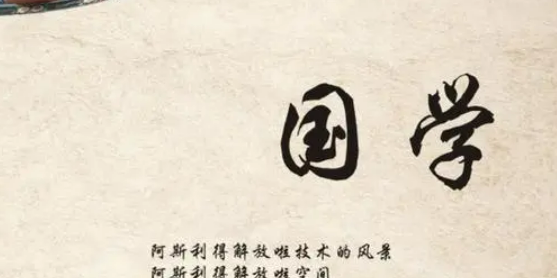 国学
阿斯利得解放啦技术的风景
阿斯利得解放啦空间